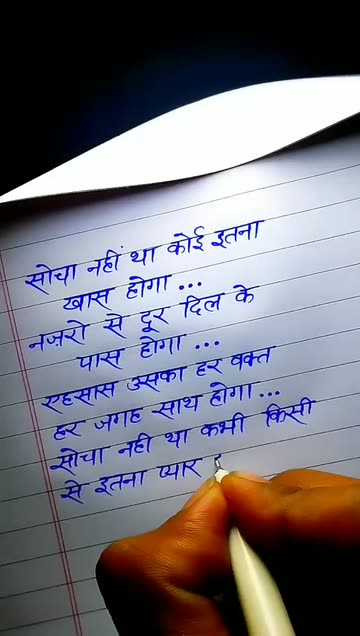 सोचा नहीं था कोई इतना
खास होगा ...
नज़रो से दूर दिल के
पास होगा ...
एहसास उसका हर वक्त
हर जगह साथ होगा ...
सोचा नही था कभी किसी
से इतना प्यार